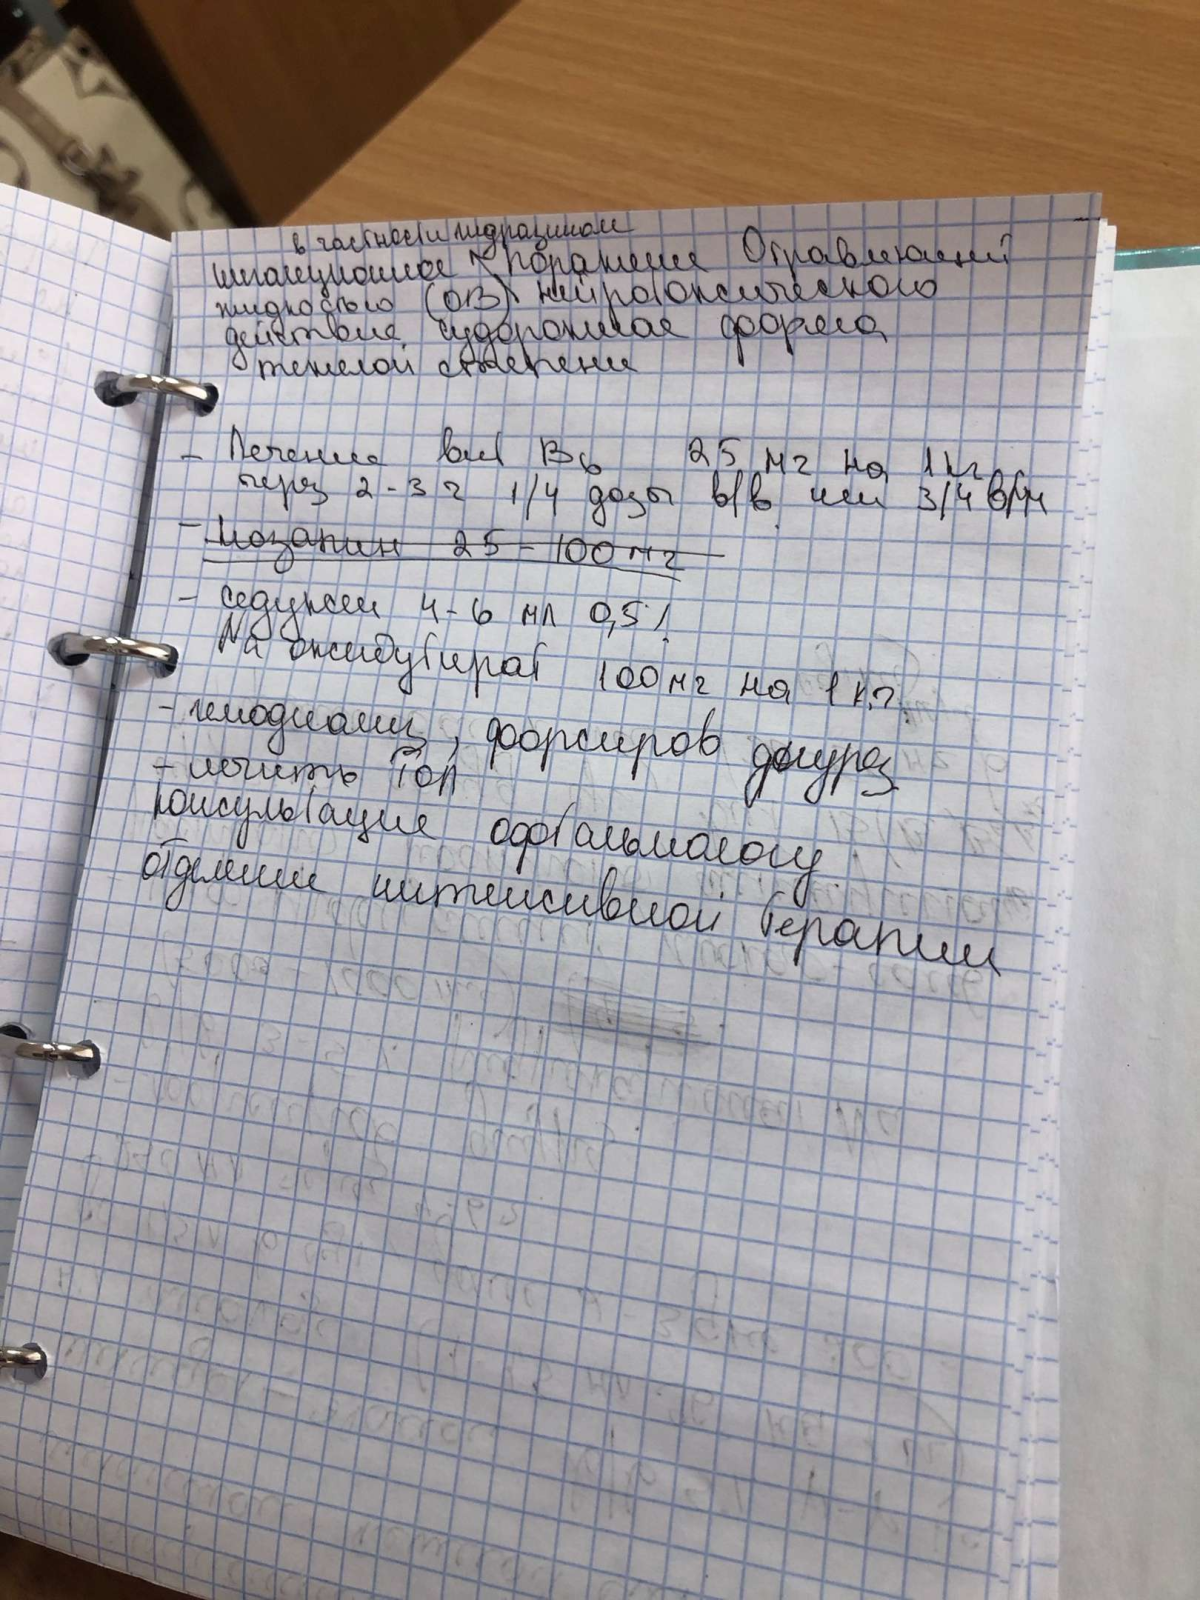 в частности гидразином
ингаляционное поражение Отравляющей
жидкостью (ОВ) нейротоксического
действия, судорожная форма
тяжелой степени
- Лечение вит B6 25 мг на 1 кг
через 2-3 ч 1/4 дозы в/в или 3/4 в/м
- Лозапин 25 - 100 мг
- седуксен 4-6 мл 0,5%
Na оксибутират 100 мг на 1 кг.
- гемодиализ, форсиров диурез
- лечить ТОЛ
консультация офтальмологу
отделение интенсивной терапии